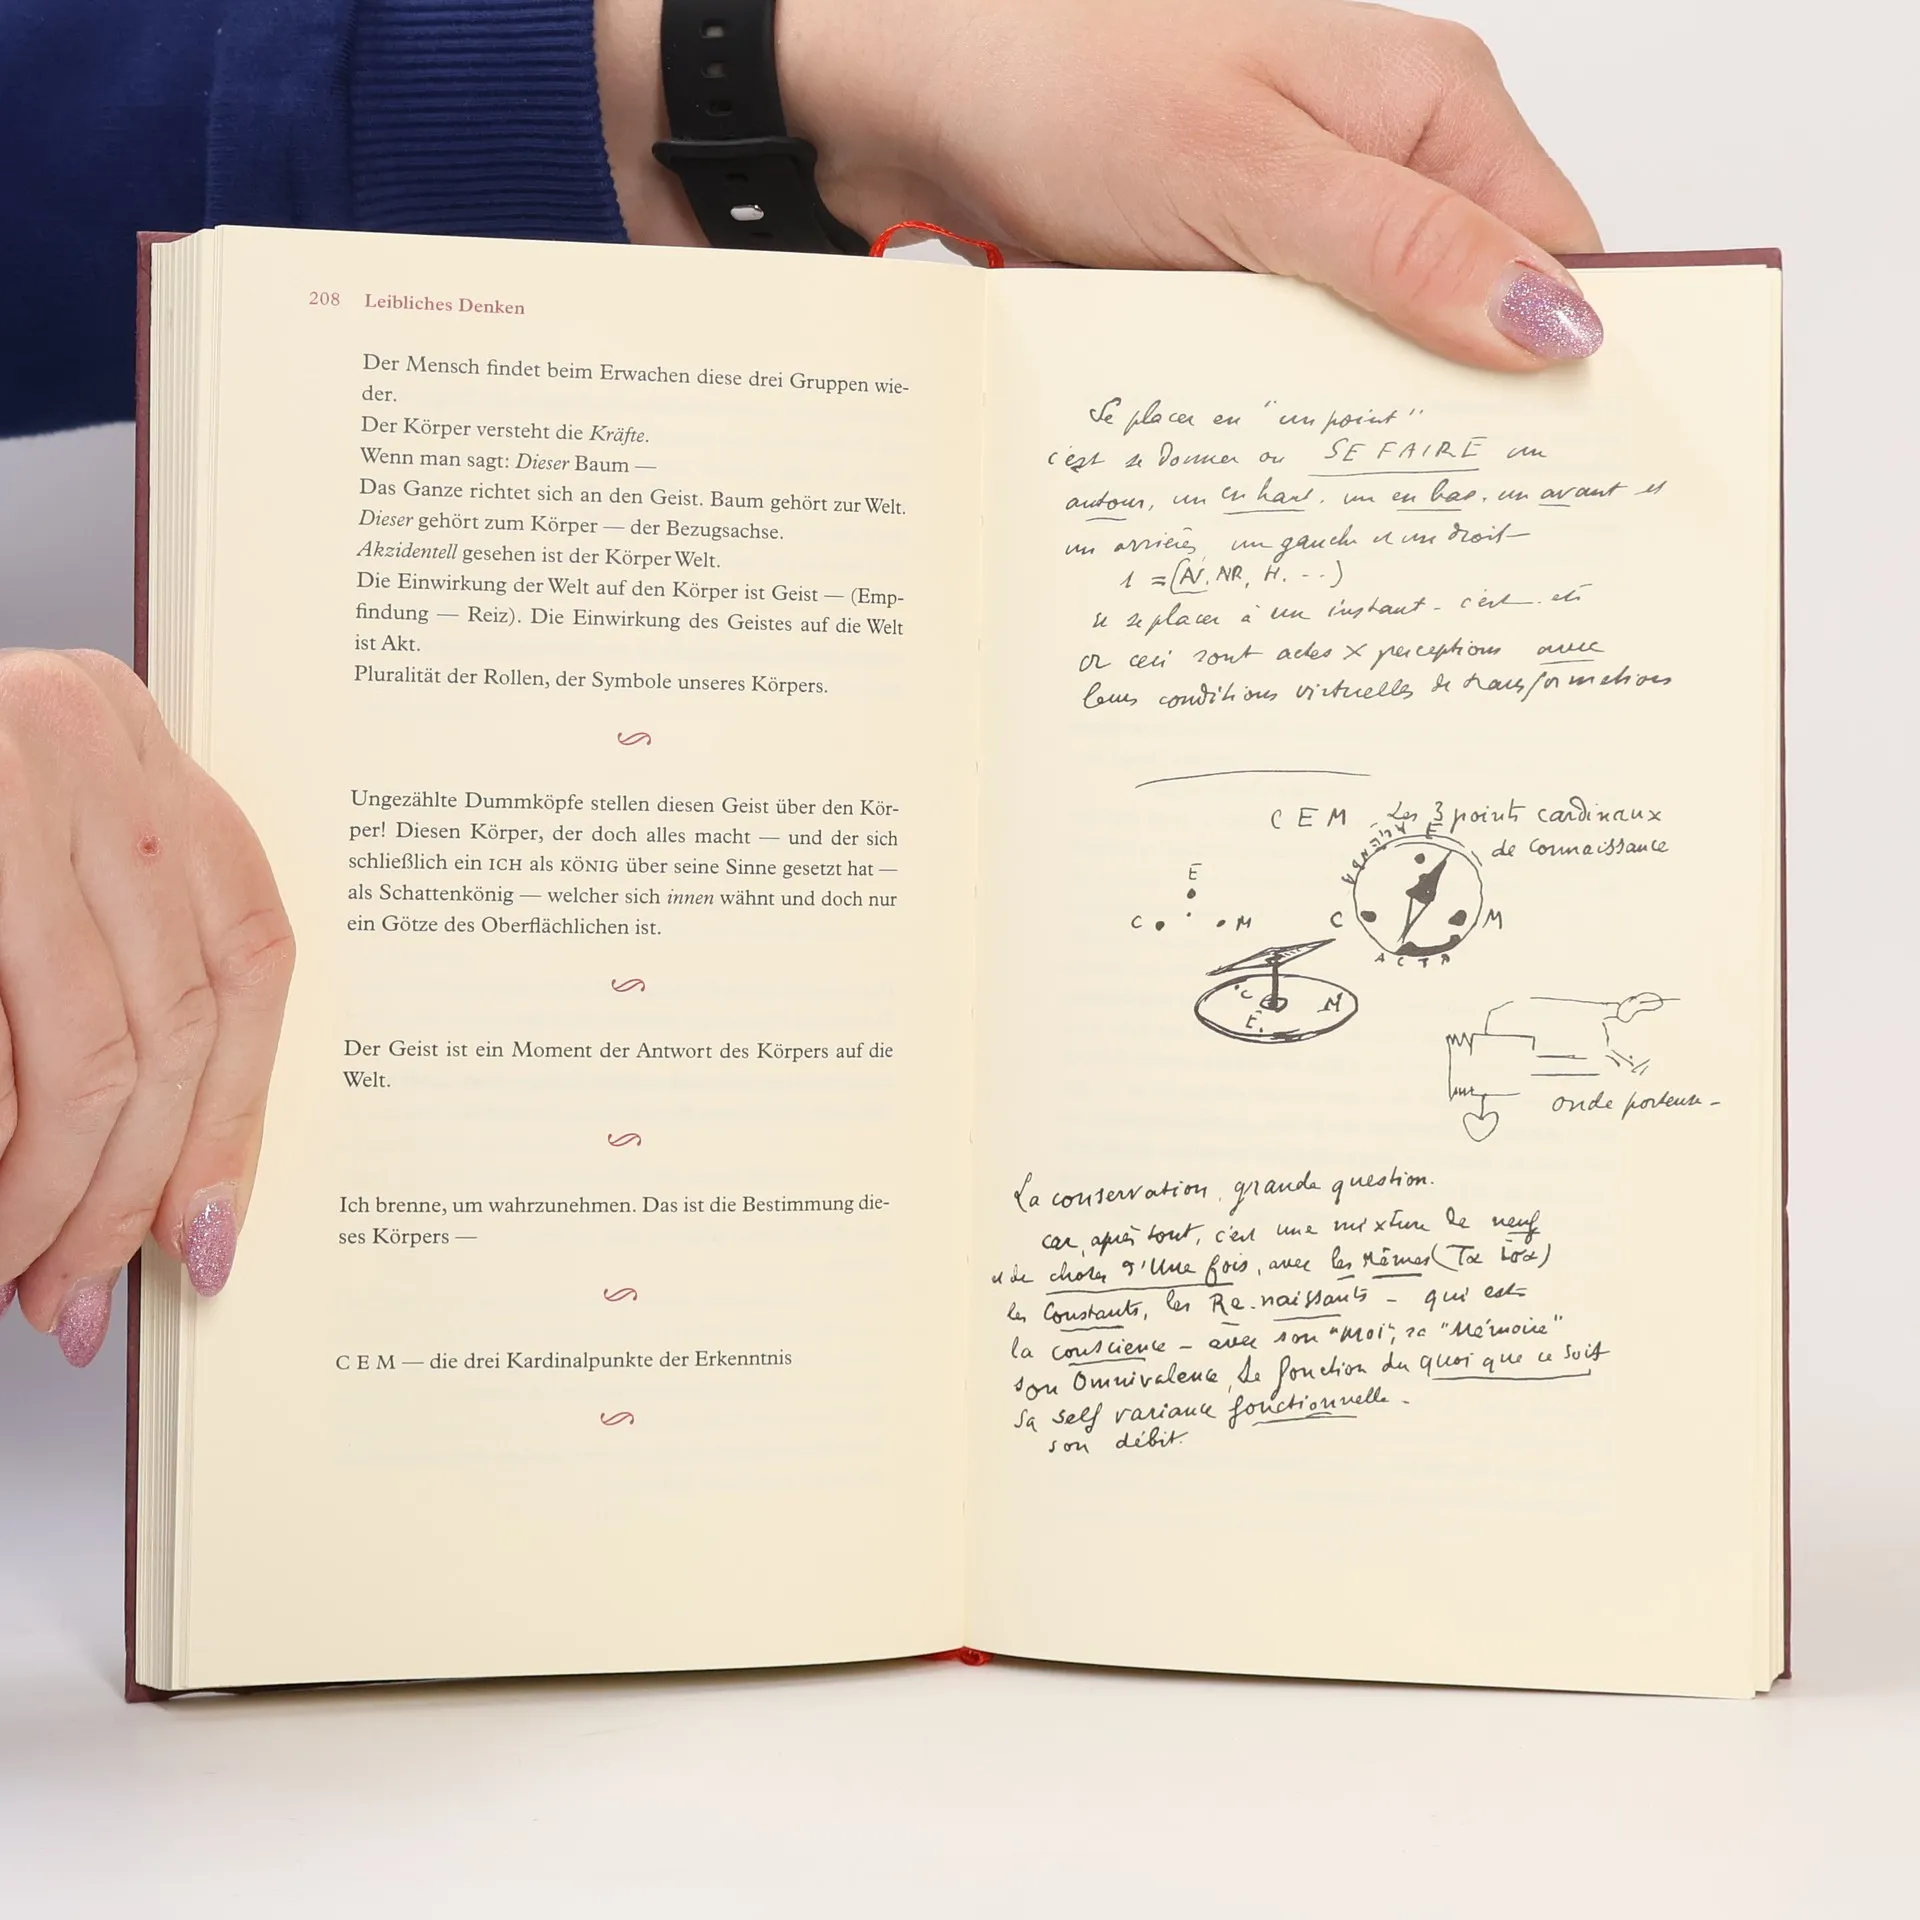 208 Leibliches Denken
Der Mensch findet beim Erwachen diese drei Gruppen wie-
der.
Der Körper versteht die Kräfte.
Wenn man sagt: Dieser Baum —
Das Ganze richtet sich an den Geist. Baum gehört zur Welt.
Dieser gehört zum Körper — der Bezugsachse.
Akzidentell gesehen ist der Körper Welt.
Die Einwirkung der Welt auf den Körper ist Geist — (Emp-
findung — Reiz). Die Einwirkung des Geistes auf die Welt
ist Akt.
Pluralität der Rollen, der Symbole unseres Körpers.
Ungezählte Dummköpfe stellen diesen Geist über den Kör-
per! Diesen Körper, der doch alles macht — und der sich
schließlich ein ICH als KÖNIG über seine Sinne gesetzt hat —
als Schattenkönig — welcher sich innen wähnt und doch nur
ein Götze des Oberflächlichen ist.
Der Geist ist ein Moment der Antwort des Körpers auf die
Welt.
Ich brenne, um wahrzunehmen. Das ist die Bestimmung die-
ses Körpers —
C E M — die drei Kardinalpunkte der Erkenntnis
Se placer en "un point"
c'est se donner ou SE FAIRE un
autour, un en haut, un en bas, un avant et
un arrière, un gauche et un droit
1 = (AV, AR, H. ...)
se placer à un instant - c'est etc
or ceci sont actes x perceptions avec
leurs conditions virtuelles de transformations
C E M - Les 3 points cardinaux
de connaissance
E
C M
E
C M
A C T A
C M
E
onde porteuse -
La conservation, grande question.
car, après tout, c'est une mixture de neuf
et de choses d'Une fois, avec les Mêmes
les Constants, les Re-naissants - qui est
la conscience - avec son "Moi", sa "Mémoire"
son Omnivalence, Le fonction du quoi que ce soit
Sa self variance fonctionnelle -
son débit.